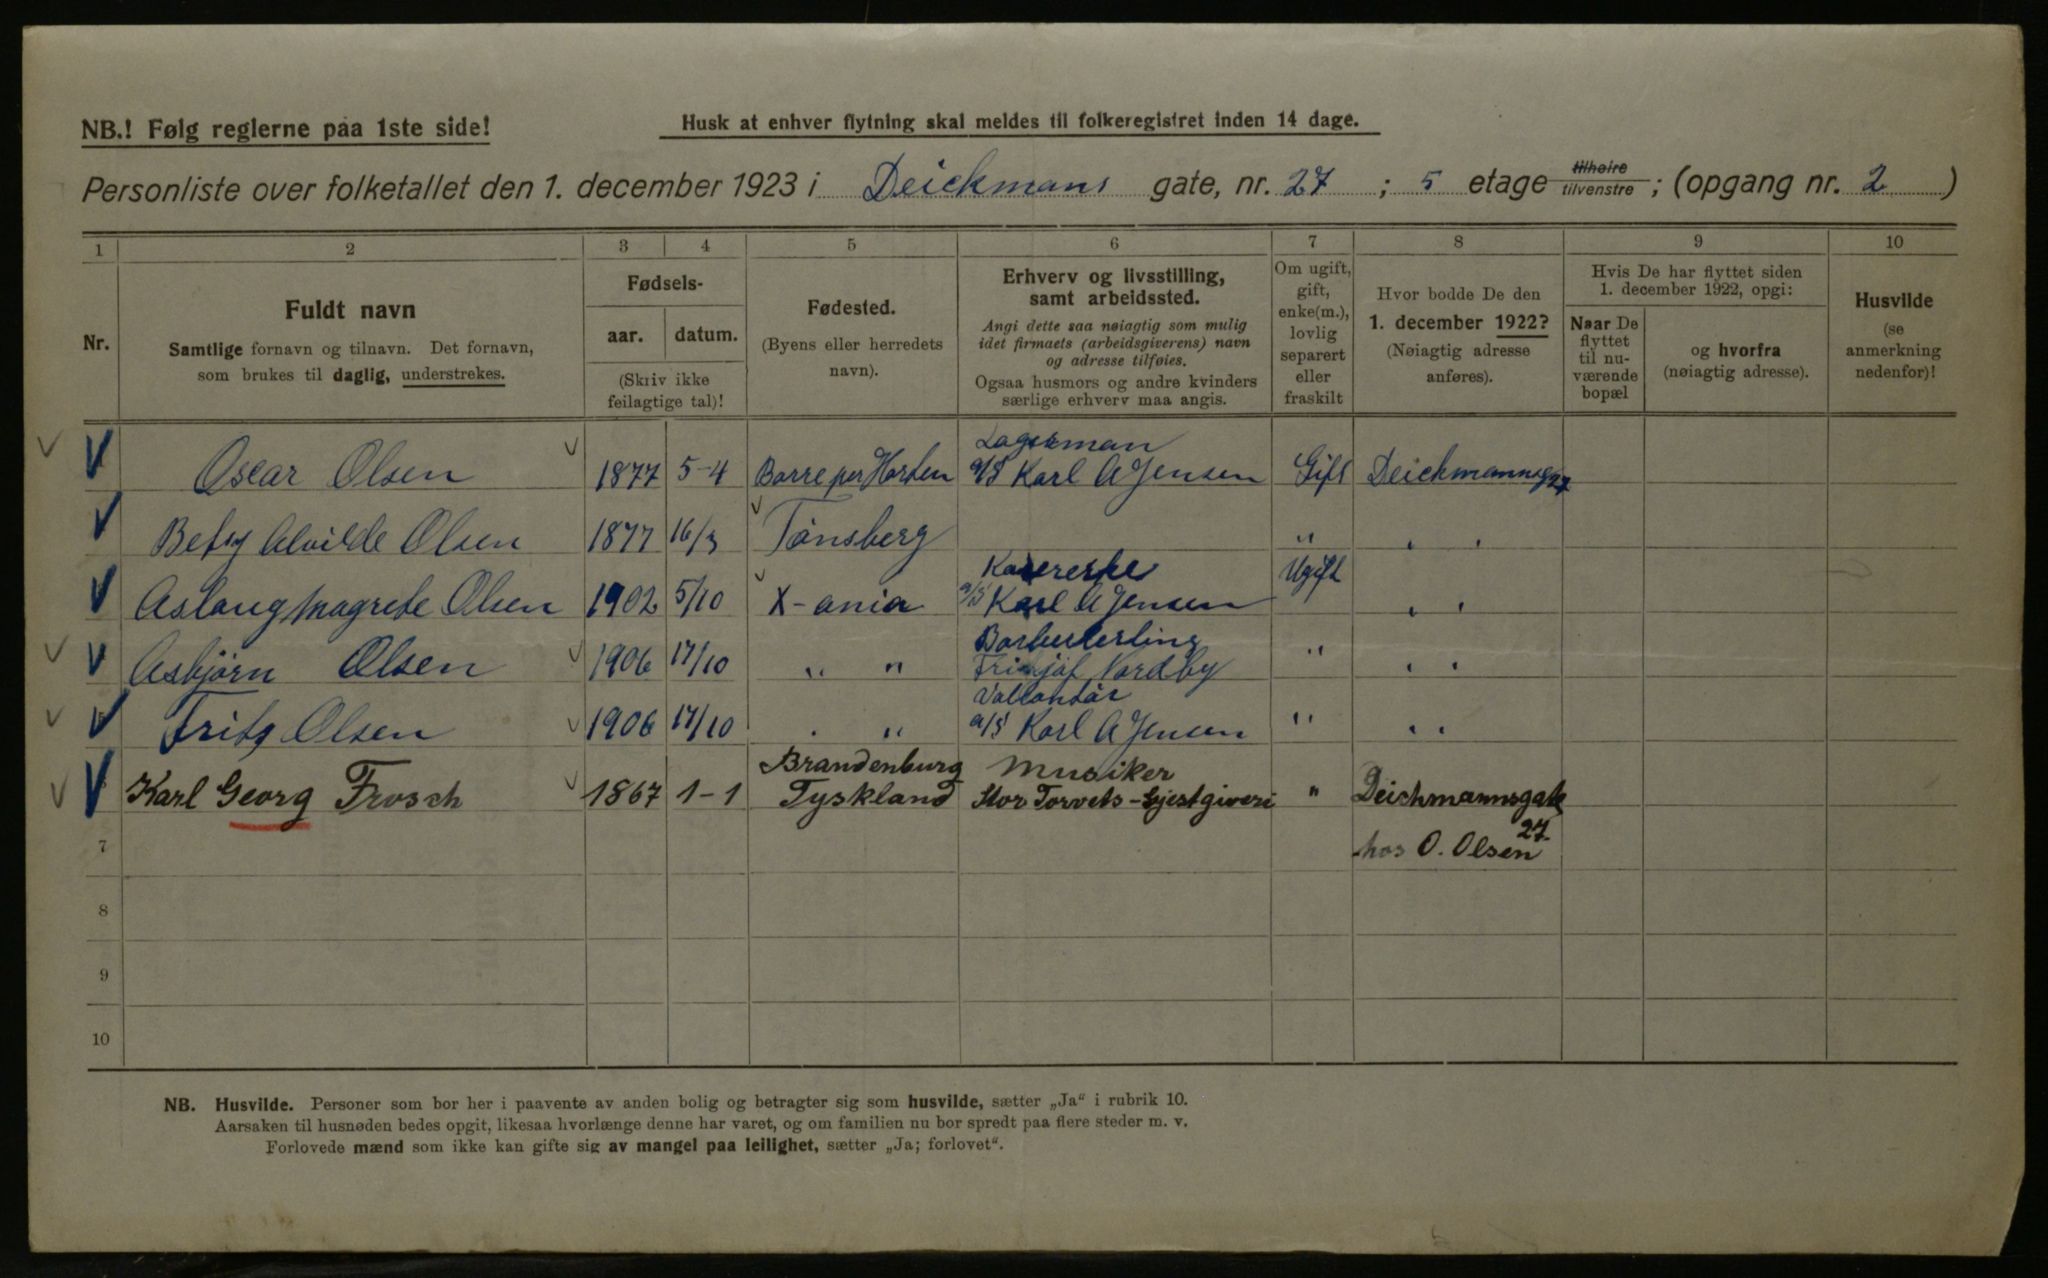 NB.! Følg reglerne paa 1ste side!
Husk at enhver flytning skal meldes til folkeregistret inden 14 dage.
Personliste over folketallet den 1. december 1923 i Deickmans gate, nr. 27 ; 5 etage tilhøire tilvenstre ; (opgang nr. 2 )
1 2 3 4 5 6 7 8 9 10
Nr.
Fuldt navn
Samtlige fornavn og tilnavn. Det fornavn,
som brukes til daglig, understrekes.
Fødsels-
aar. datum.
(Skriv ikke
feilagtige tal)!
Fødested.
(Byens eller herredets
navn).
Erhverv og livsstilling,
samt arbeidssted.
Angi dette saa nøiagtig som mulig
idet firmaets (arbeidsgiverens) navn
og adresse tilføies.
Ogsaa husmors og andre kvinders
særlige erhverv maa angis.
Om ugift,
gift,
enke(m.),
lovlig
separert
eller
fraskilt
Hvor bodde De den
1. december 1922?
(Nøiagtig adresse
anføres).
Hvis De har flyttet siden
1. december 1922, opgi:
Naar De
flyttet
til nu-
værende
bopæl
og hvorfra
(nøiagtig adresse).
Husvilde
(se
anmerkning
nedenfor)!
Lagerman
Oscar Olsen 1877 5-4 Borre per Horten a/S Karl A Jensen Gift Deickmannsg 27
Betsy Alvilde Olsen 1877 16/3 Tønsberg " " "
Kassererske
Aslaug Magrete Olsen 1902 5/10 X-ania a/S Karl A Jensen Ugift " "
Asbjørn Olsen 1906 17/10 " " Fritjof Nordby " " "
Volontør
Fritz Olsen 1906 17/10 " " a/S Karl A Jensen " " "
Brandenburg Musiker
Karl Georg Frosch 1867 1-1 Tyskland Stor Torvets-Gjestgiveri " Deichmannsgate
27.
7 hos O. Olsen
8
9
10
NB. Husvilde. Personer som bor her i paavente av anden bolig og betragter sig som husvilde, sætter „Ja“ i rubrik 10.
Aarsaken til husnøden bedes opgit, likesaa hvorlænge denne har varet, og om familien nu bor spredt paa flere steder m. v.
Forlovede mænd som ikke kan gifte sig av mangel paa leilighet, sætter „Ja; forlovet“.